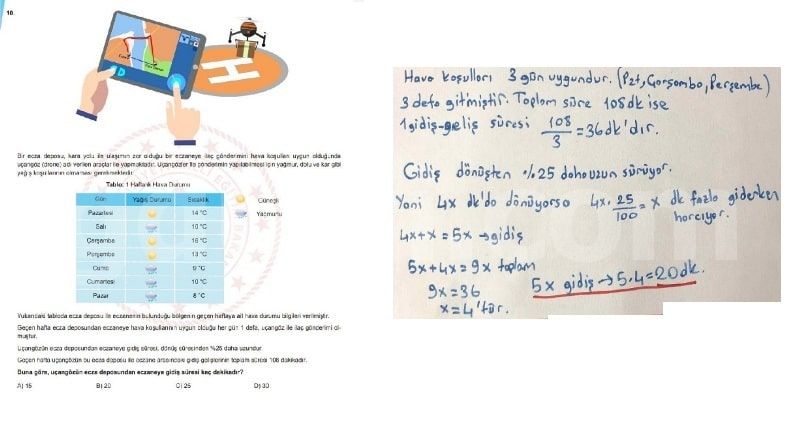 10.
Bir ecza deposu, kara yolu ile ulaşımın zor olduğu bir eczaneye ilaç gönderimini hava koşulları uygun olduğunda
uçangöz (drone) adı verilen araçlar ile yapmaktadır. Uçangözler ile gönderimin yapılabilmesi için yağmur, dolu ve kar gibi
yağış koşullarının olmaması gerekmektedir.
Tablo: 1 Haftalık Hava Durumu
Gün Yağış Durumu Sıcaklık
Güneşli
Pazartesi 14 °C
Yağmurlu
Salı 10 °C
Çarşamba 16 °C
Perşembe 13 °C
Cuma 9 °C
Cumartesi 10 °C
Pazar 8 °C
Yukarıdaki tabloda ecza deposu ile eczanenin bulunduğu bölgenin geçen haftaya ait hava durumu bilgileri verilmiştir.
Geçen hafta ecza deposundan eczaneye hava koşullarının uygun olduğu her gün 1 defa, uçangöz ile ilaç gönderimi ol-
muştur.
Uçangözün ecza deposundan eczaneye gidiş süresi, dönüş süresinden %25 daha uzundur.
Geçen hafta uçangözün bu ecza deposu ile eczane arasındaki gidiş gelişlerinin toplam süresi 108 dakikadır.
Buna göre, uçangözün ecza deposundan eczaneye gidiş süresi kaç dakikadır?
A) 15 B) 20 C) 25 D) 30
Hava koşulları 3 gün uygundur. (Pzt, Çarşamba, Perşembe)
3 defa gitmiştir. Toplam süre 108 dk ise
1 gidiş-geliş süresi 108/3 = 36 dk'dır.
Gidiş dönüşten %25 daha uzun sürüyor.
Yani 4x dk'da dönüyorsa 4x. 25/100 = x dk fazla giderken
harcıyor.
4x+x = 5x → gidiş
5x+4x = 9x toplam
9x = 36
x = 4'tür.
5x gidiş → 5.4 = 20 dk.